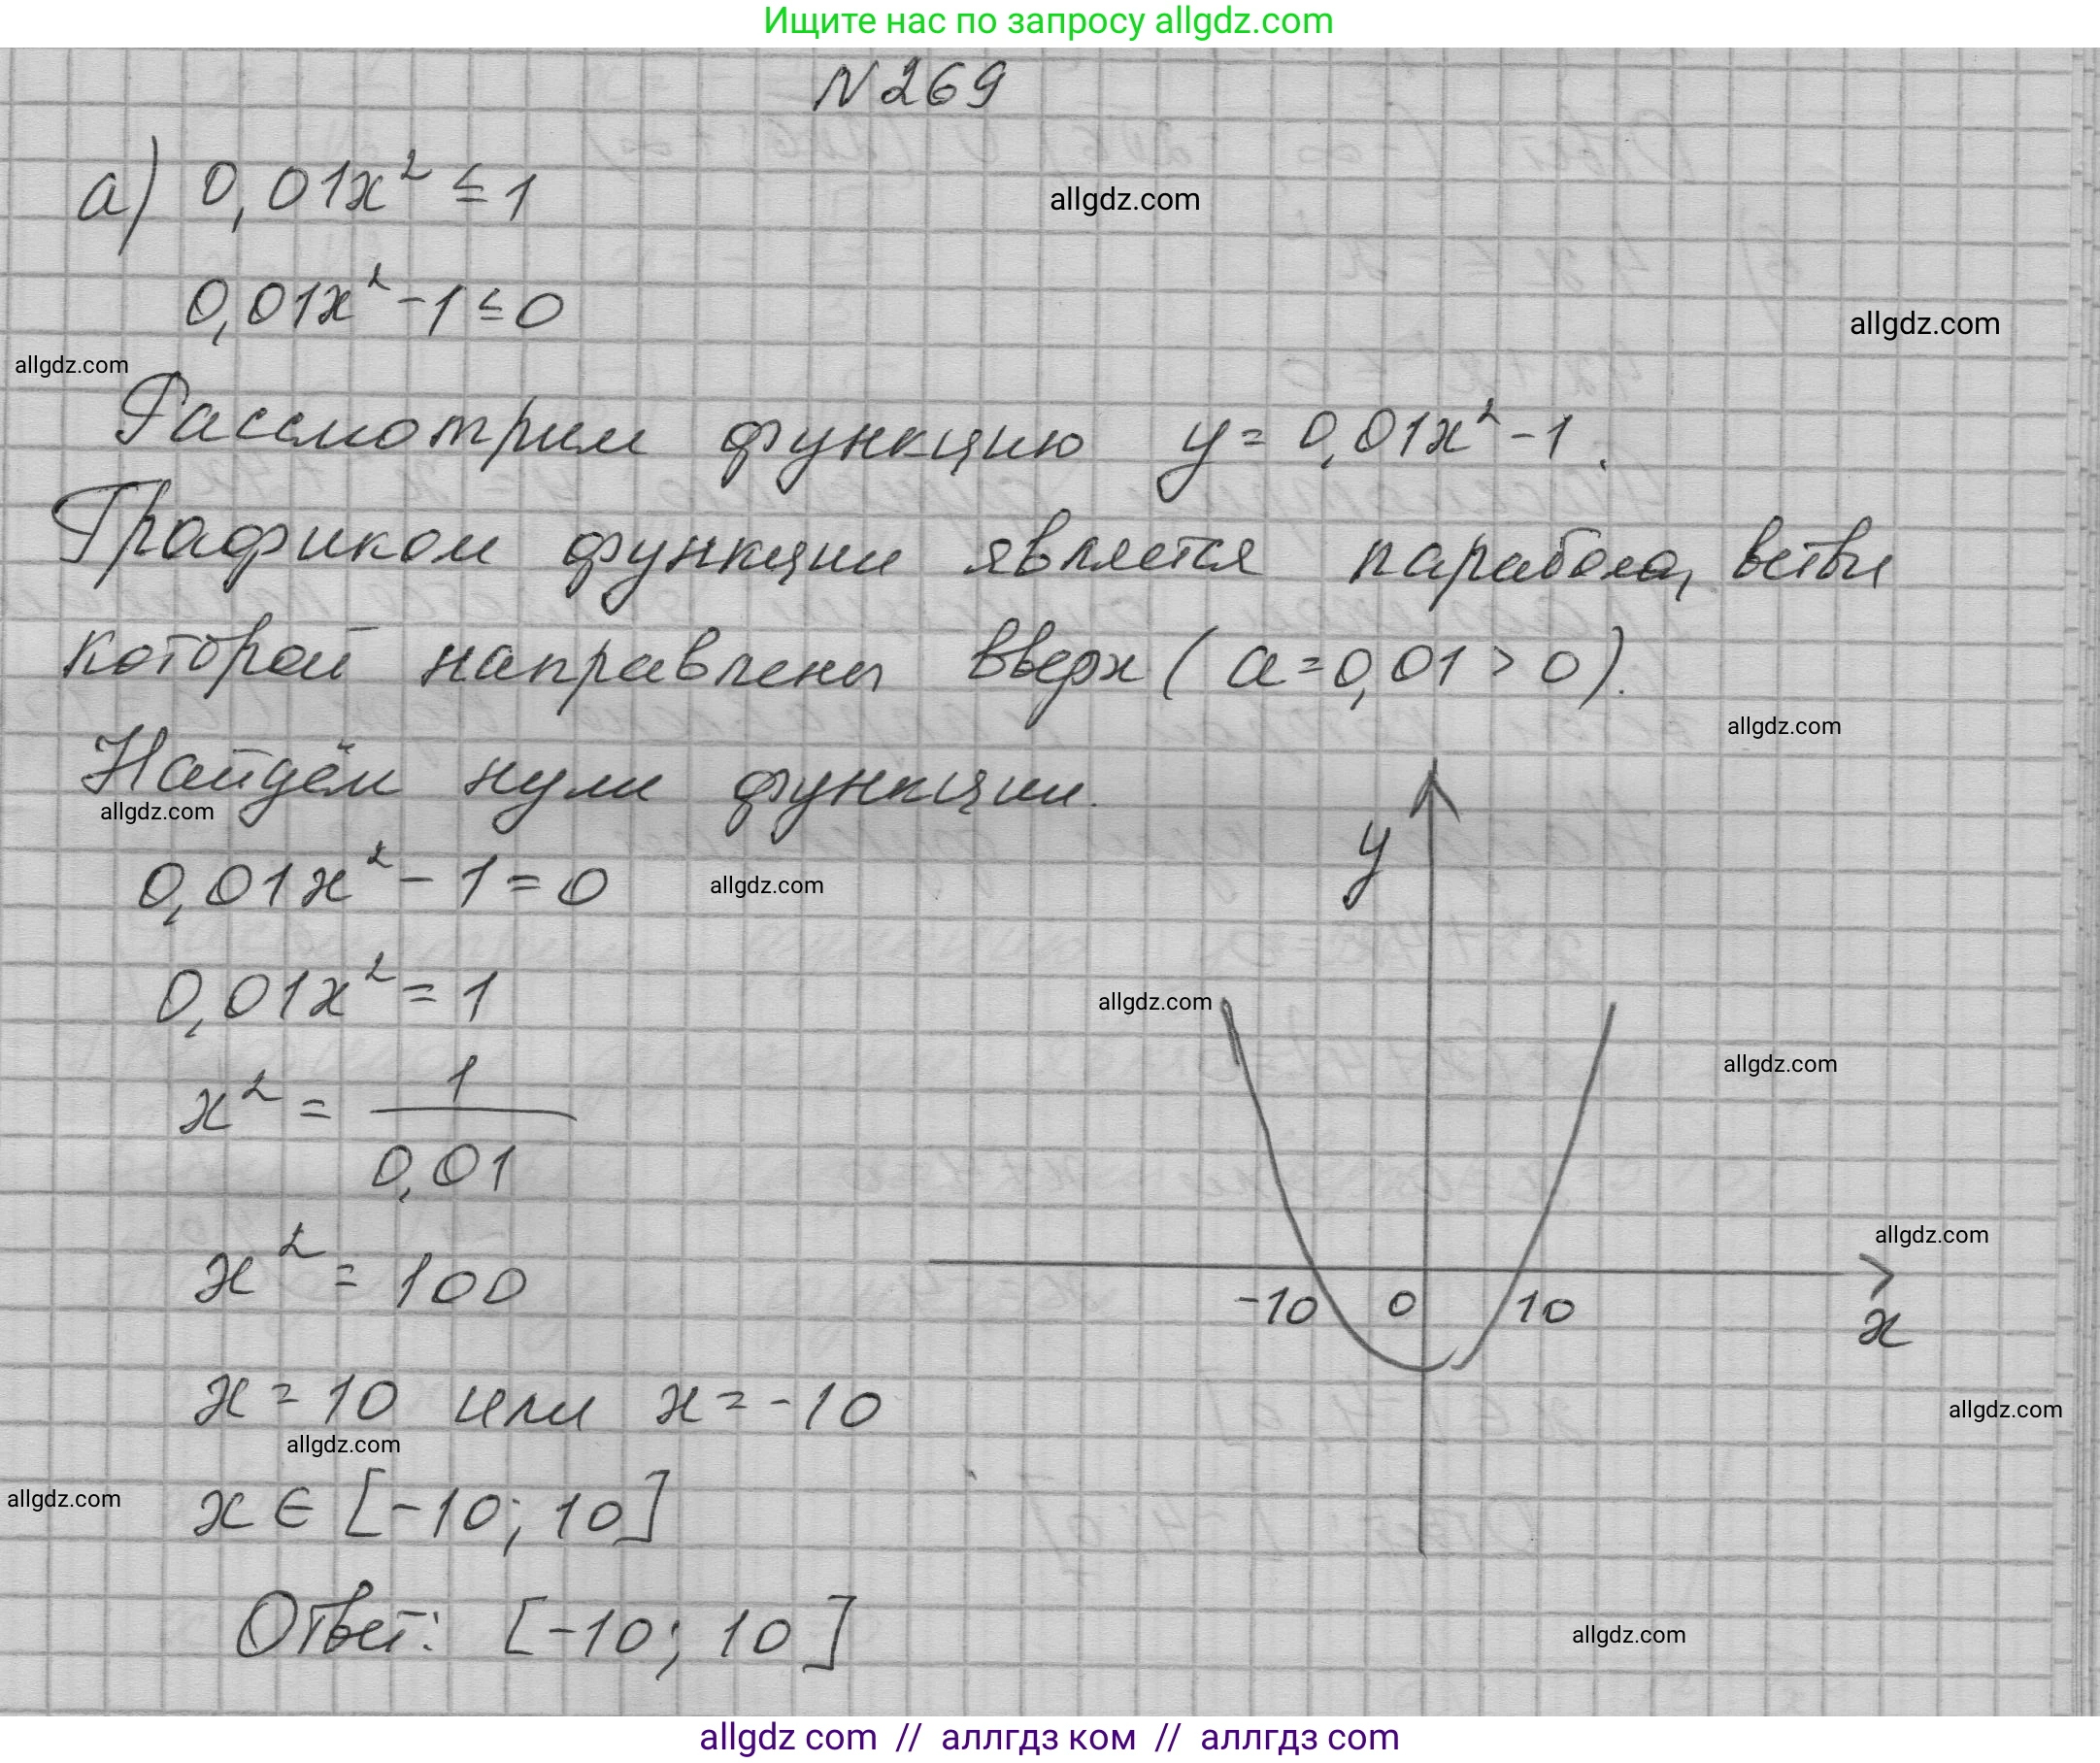 Ищите нас по запросу allgdz.com
N 269
а) 0,01x² ≤ 1
allgdz.com
0,01x² - 1 ≤ 0
allgdz.com
allgdz.com
Рассмотрим функцию y = 0,01x² - 1.
Графиком функции является парабола, ветви
которой направлены вверх (a = 0,01 > 0).
allgdz.com
Найдём нули функции.
allgdz.com
y
0,01x² - 1 = 0
allgdz.com
0,01x² = 1
allgdz.com
allgdz.com
x² = 1/0,01
allgdz.com
x² = 100
-10 0 10
x
x = 10 или x = -10
allgdz.com
allgdz.com
allgdz.com
x ∈ [-10; 10]
Ответ: [-10; 10]
allgdz.com
allgdz com // аллгдз ком // аллгдз com